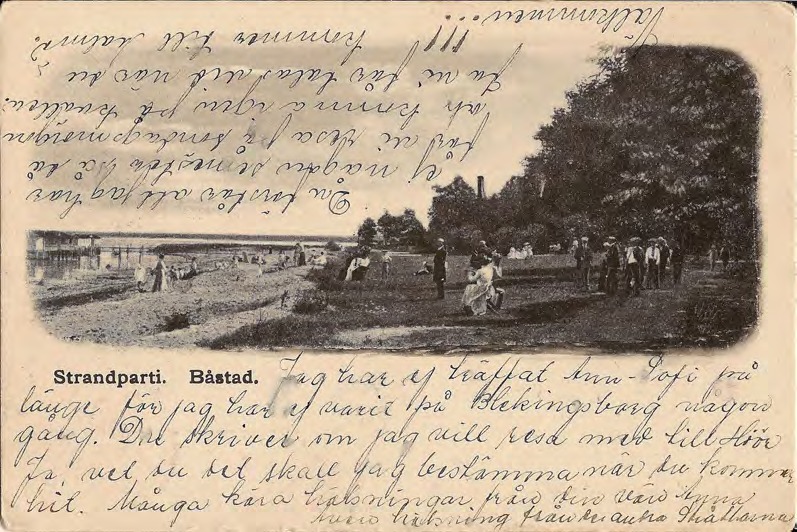 Strandparti. Båstad.
Jag har ej träffat Ann-Sofi på
länge för jag har ej varit på Blekingsborg någon
gång. Du skriver om jag vill resa med till Höör
Ja, vet du det skall jag bestämma när du kommer
hit. Många kära hälsningar från din vän Anna
Även hälsning från de andra
Du förstår att jag har
ej någon semester så då
får vi resa på söndagsmorgon
och komma igen på kvällen
Ja vi får talas vid när du
kommer till Malmö.
Välkommen!!!